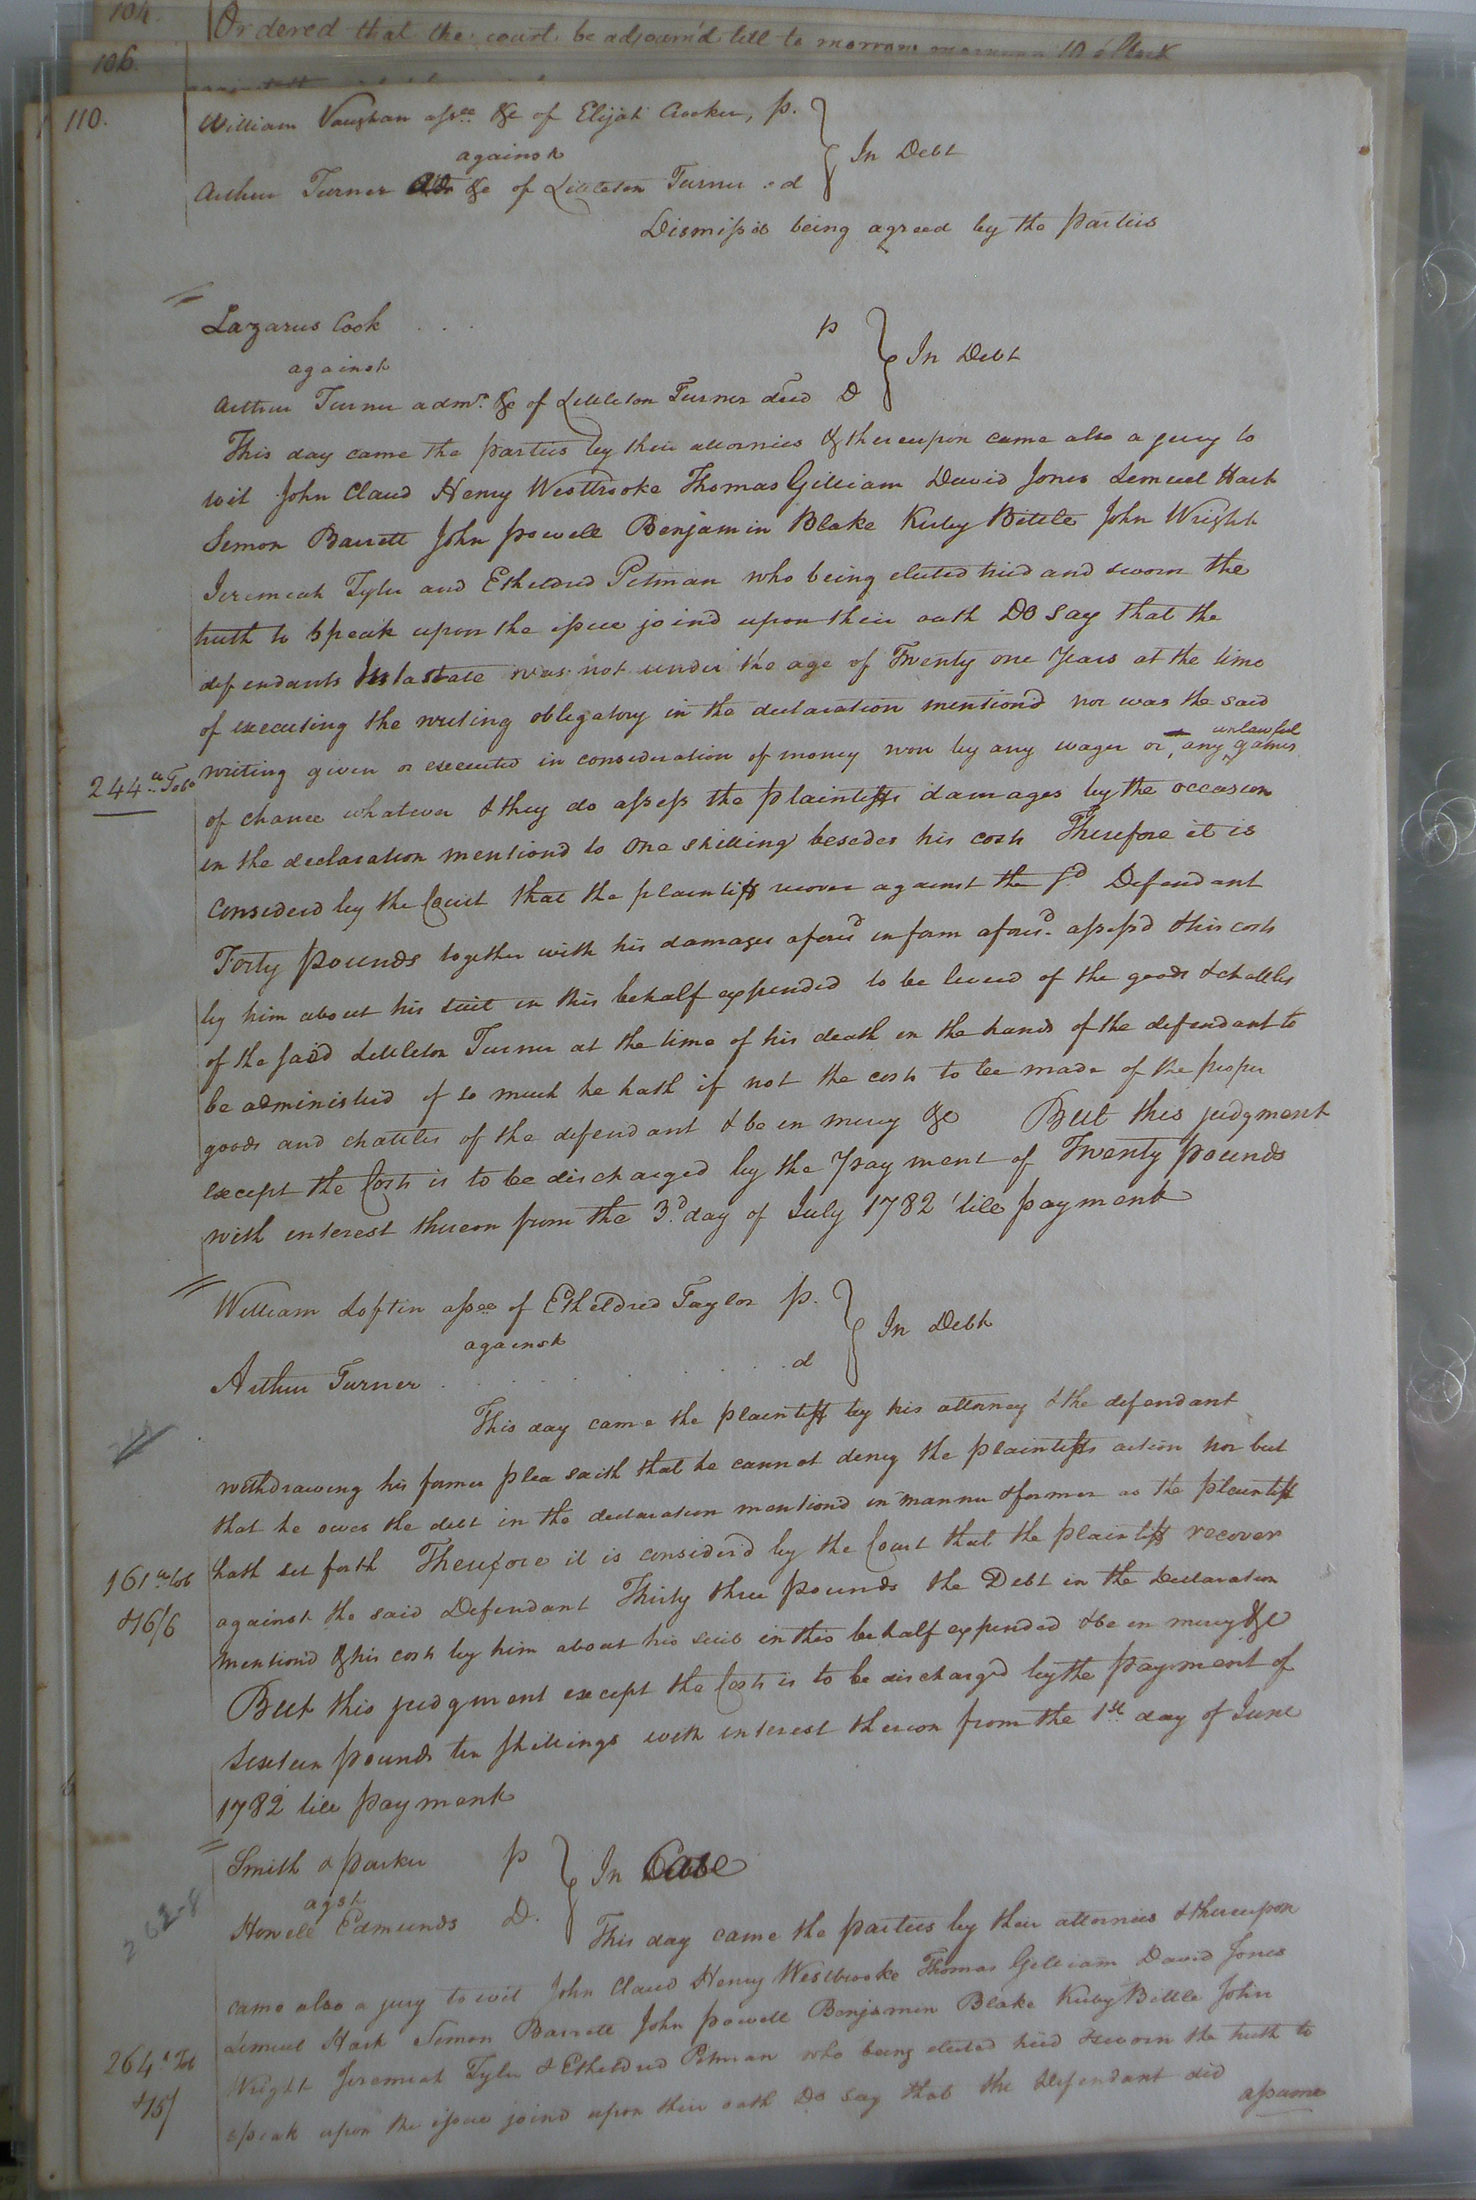 104. Ordered that the court be adjourn'd till to morrow morning 10 oClock
106.
110.
William Vaughan assee &c of Elijah Crocker, p.
against
In Debt
Arthur Turner Adr &c of Littleton Turner . d
Dismiss'd being agreed by the parties
Lazarus Cook . . . p
against
In Debt
Arthur Turner admr. &c of Littleton Turner decd D
This day came the parties by their attornies & thereupon came also a jury to
wit John Claud Henry Westbrooke Thomas Gilliam David Jones Lemuel Hart
Simon Barrett John powell Benjamin Blake Kirby Bittle John Wright
Jeremiah Tyler and Etheldred Pitman who being elected tried and sworn the
truth to speak upon the issue joind upon their oath Do say that the
defendants Intastate was not under the age of Twenty one Years at the time
of executing the writing obligatory in the declaration mention'd nor was the said
writing given or executed in consideration of money won by any wager or any unlawful games
244 lb Tobo
of chance whatever & they do assess the plaintiffs damages by the occasion
in the declaration mentiond to One shilling besides his costs Therefore it is
considerd by the Court that the plaintiff recover against the sd Defendant
Forty pounds together with his damages aforesd in form aforesd. assess'd & his costs
by him about his suit in this behalf expended to be levied of the goods & chattles
of the said Littleton Turner at the time of his death in the hands of the defendant to
be administred if so much he hath if not the costs to be made of the proper
goods and chattles of the defendant & be in mercy &c But this judgment
except the Costs is to be discharged by the payment of Twenty pounds
with interest thereon from the 3d. day of July 1782 'till payment
William Loftin assee of Etheldred Taylor p.
against
In Debt
Arthur Turner . . . . . d
This day came the plaintiff by his attorney & the defendant
withdrawing his former plea saith that he cannot deny the plaintiffs action nor but
that he owes the debt in the declaration mention'd in manner & former as the plaintiff
hath set forth Therefore it is consider'd by the Court that the plaintiff recover
161 lb tob
against the said Defendant Thirty three pounds the Debt in the Declaration
& 16/6
mention'd & his costs by him about his suit in this behalf expended & be in mercy &c
But this judgment except the Costs is to be discharg'd by the payment of
Sixteen pounds ten shillings with interest thereon from the 1st day of June
1782 till payment
Smith & parker p
agst
In Case
Howell Edmunds D.
262-8
This day came the parties by their attornies & thereupon
came also a jury to wit John Claud Henry Westbrooke Thomas Gilliam David Jones
Lemuel Hart Simon Barrett John powell Benjamin Blake Kirby Bittle John
264 lb Tob
Wright Jeremiah Tyler & Etheldred Pitman who being elected tried & sworn the truth to
& 15/
speak upon the issue joind upon their oath Do say that the defendant did
assume